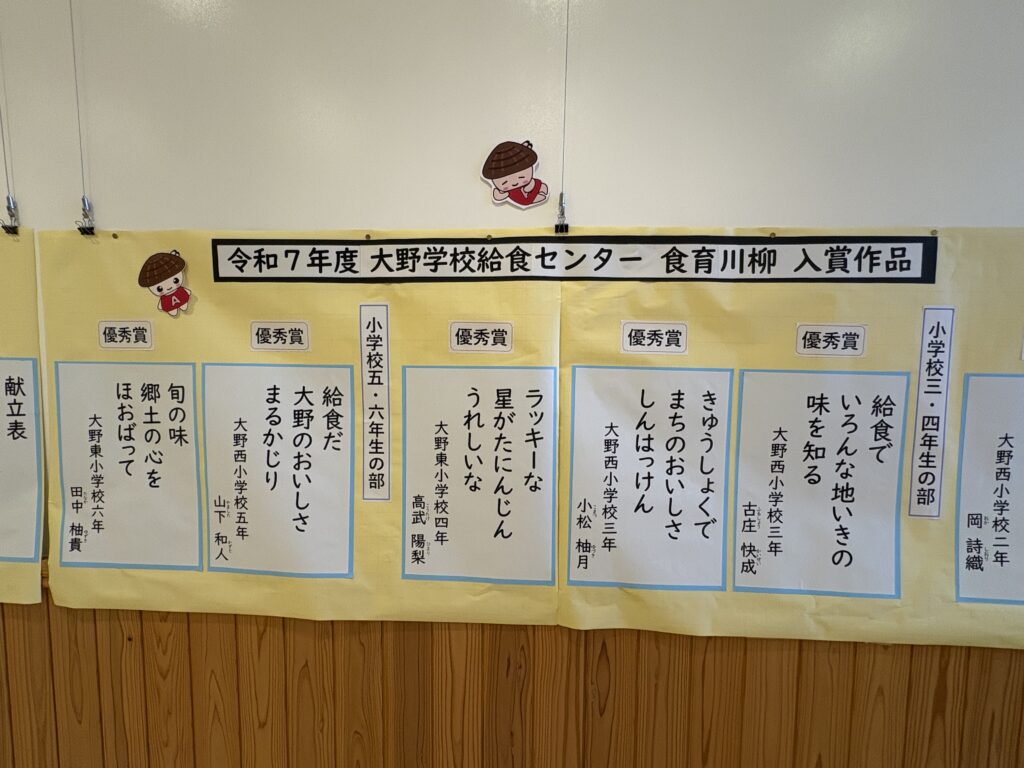 令和7年度 大野学校給食センター 食育川柳 入賞作品
大野西小学校二年
岡 詩織
小学校三・四年生の部
優秀賞
給食で
いろんな地いきの
味を知る
大野西小学校三年
古庄 快成
優秀賞
きゅうしょくで
まちのおいしさ
しんはっけん
大野西小学校三年
小松 柚月
優秀賞
ラッキーな
星がたにんじん
うれしいな
大野東小学校四年
高武 陽梨
小学校五・六年生の部
優秀賞
給食だ
大野のおいしさ
まるかじり
大野西小学校五年
山下 和人
優秀賞
旬の味
郷土の心を
ほおばって
大野東小学校六年
田中 柚貴
献立表
A